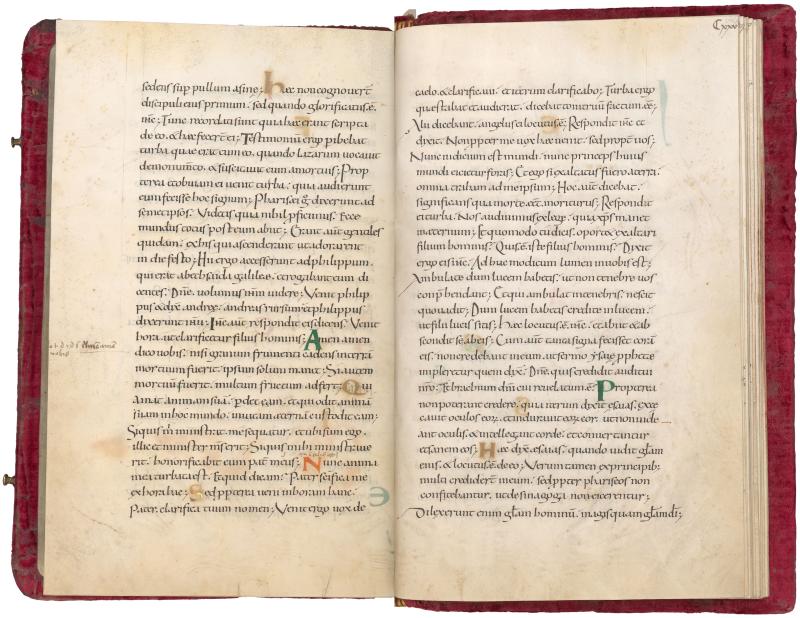 sedens sup̄ pullum asine; hæc non cognoverт̄
discipuli eius primum. sed quando glorificatus ē
ih̄c; Tunc recordati sunt quia hæc erant scripta
de eo. & hæc fecerт̄ ei; Testimonium ergo p̄hibebat
turba quæ erat cum eo. quando lazarum vocavit
de monum̄to. & suscitavit eum a mortuis; Prop
terea & obviam ei venit turba. quia audierunt
eum fecisse hoc signum; Pharisæi g̊ dixerunt ad
semetipsos. Videtis quia nihil p̄ficimus. Ecce
mundus totus post eum abiit; Erant aūt gentiles
quidam. ex his qui ascenderunt ut adorarent
in die festo; Hii ergo accesserunt ad philippum.
qui erat a bethsaida galileæ. & rogabant eum di
centes. Dn̄e. volumus ih̄m videre; Venit philip
pus & dix̄ andreæ. andreas rursum & philippus
dixerunt ih̄u; Ih̄c aūt respondit eis dicens. Venit
hora. ut clarificetur filius hominis; Amen amen
dico vobis. nisi granum frumenti cadens in terra
mortuum fuerit. ipsum solum manet; Si autem
mortuum fuerit. multum fructum adfert; Qui
amat animam suā. p̄det eam. et qui odit animā
suam in hoc mundo. in vitam æternā custodit eam;
Siquis m̄ ministrat. me sequatur. et ubi sum ego.
illic et minister m̄s erit; Siquis mihi ministrave
rit. honorificabit eum pat̄ meus; Nunc anima
mea turbata est. Et quid dicam; Pater salvifica me
ex hora hac; Sed p̄pterea veni in horam hanc.
Pater. clarifica tuum nomen; Venit ergo vox de
Cxxxviiii
caelo. & clarificavi. et iterum clarificabo; Turba ergo
quæ stabat et audierat. dicebat tonitruū factum eē;
Alii dicebant. angelus ei locutus ē; Respondit ih̄c et
dixit. Non propter me vox hæc venit. sed propt̄ vos;
Nunc iudicium est mundi. nunc princeps huius
mundi eicietur foris; Et ego si exaltatus fuero a terra.
omnia traham ad me ipsum; Hoc aūt dicebat.
significans qua morte eēt moriturus; Respondit
ei turba. Nos audivimus ex lege. quia xp̄s manet
in æternum; Et quomodo tu dicis. oport& exaltari
filium hominis? Quis ē iste filius hominis? Dixit
ergo eis ih̄c. Adhuc modicum lumen in vobis est;
Ambulate dum lucem habetis. ut non tenebre vos
conp̄hendant; Et qui ambulat in tenebris. nescit
quo vadit; Dum lucem habetis credite in lucem.
ut filii lucis sitis; Hæc locutus ē ih̄c. et abiit & ab
scondit se ab eis; Cum aūt tanta signa fecisset corā
eis. non credebant in eum. ut sermo ysaiæ p̄phetæ
impleretur quem dix̄. Dn̄e. quis credidit auditui
nr̄o? Et brachium dn̄i cui revelatum ē? Propterea
non poterant credere. quia iterum dixit esaias. Exce
cavit oculos eoȝ. et induravit eoȝ cor. ut non vide
ant oculis. & intellegant corde. et convertantur
et sanem eos; Hæc dix̄ esaias. quando vidit glam̄
eius. & locutus ē de eo; Verumtamen ex principib;
multi crediderт̄ in eum. sed p̄pter phariseos non
confitebantur. ut de sinagoga non eicerentur;
Dilexerunt enim glām hominū. magis quam glām dī;